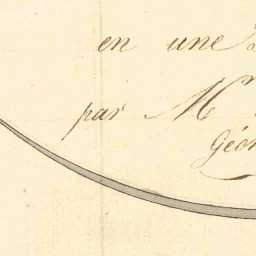 en une
par M.r
Géo